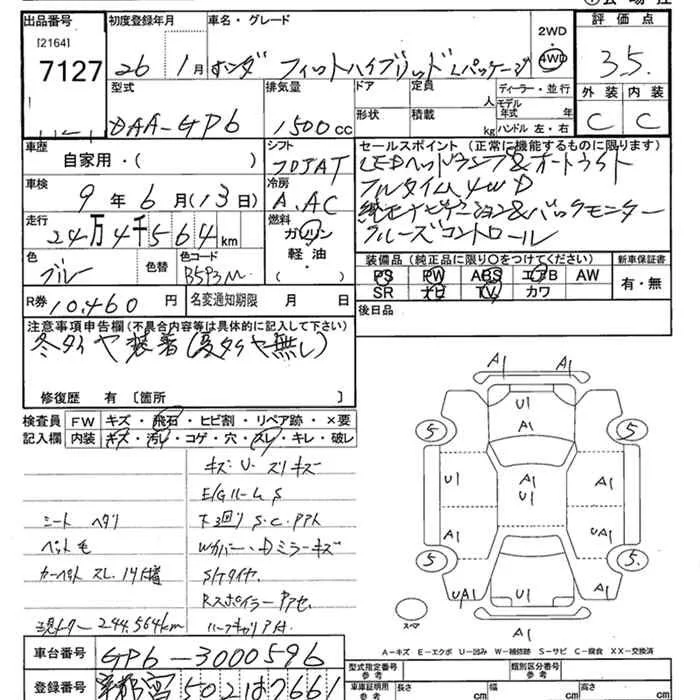 出品番号 初度登録年月 車名・グレード 2WD 評価点
[2164]
7127 26 1月 ホンダ フィットハイブリッド Lパッケージ 4WD 3.5
型式 排気量 ドア 定員 人 ディーラー・並行 外装 内装
DAA-GP6 1500cc 形状 積載 kg モデル年式 年 ハンドル 左・右 C C
車歴 シフト セールスポイント(正常に機能するものに限ります)
自家用・( ) フロアAT LEDヘッドランプ&オートライト
車検 冷房 フルタイム4WD
9年6月(13日) A.AC 純正ナビゲーション&バックモニター
走行 燃料 クルーズコントロール
24万4千564km ガソリン
色 色替 色コード 軽油・ 装備品(純正品に限り○をつけてください) 新車保証書
ブルー B593M ( ) PS PW ABS エアB AW 有・無
R券 10,460円 名変通知期限 月 日 SR ナビ TV カワ
後日品
注意事項申告欄(不具合内容等は具体的に記入して下さい)
冬タイヤ装着(夏タイヤ無し)
修復歴 有 [箇所
検査員 FW キズ・飛石・ヒビ割・リペア跡・×要
記入欄 内装 キズ・汚レ・コゲ・穴・スレ・キレ・破レ
キズ U スリキズ
E/Gルーム S
シート ヘタリ 下回り S.C.
ペット毛 Wカバー・Dミラーキズ
カーペット スレ. S/Tタイヤ
Rスポイラー
現メーター 244,564km
A1 A1
U1
A1
5 5
U1 A1 U1 A1
A1 UA1
5 5.
UA1 U1 A1
A1
スペア
A-キズ E-エクボ U-凹み W-補修跡 S-サビ C-腐食 XX-交換済
車台番号 GP6-3000596 型式指定番号 参考 類別区分番号 参考
登録番号 宇都宮502は7661 車庫証明用 参考 長さ cm 幅 cm 高さ cm